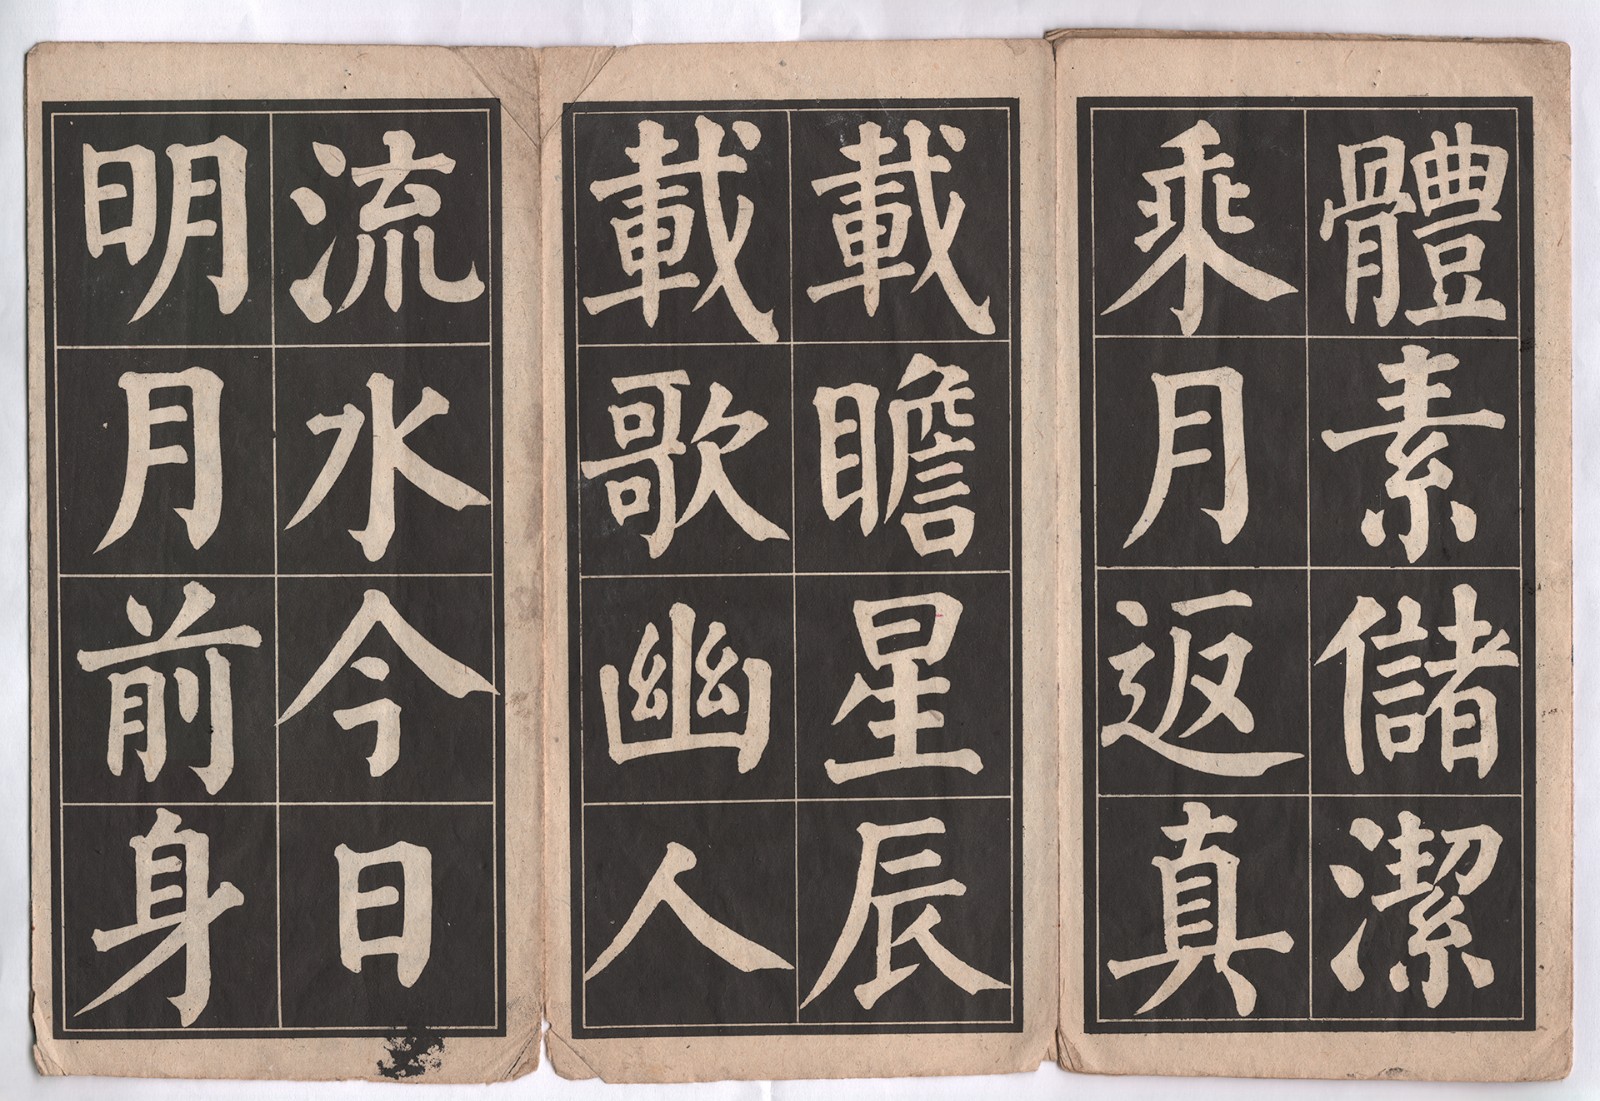 體素儲潔
乘月返真
載瞻星辰
載歌幽人
流水今日
明月前身